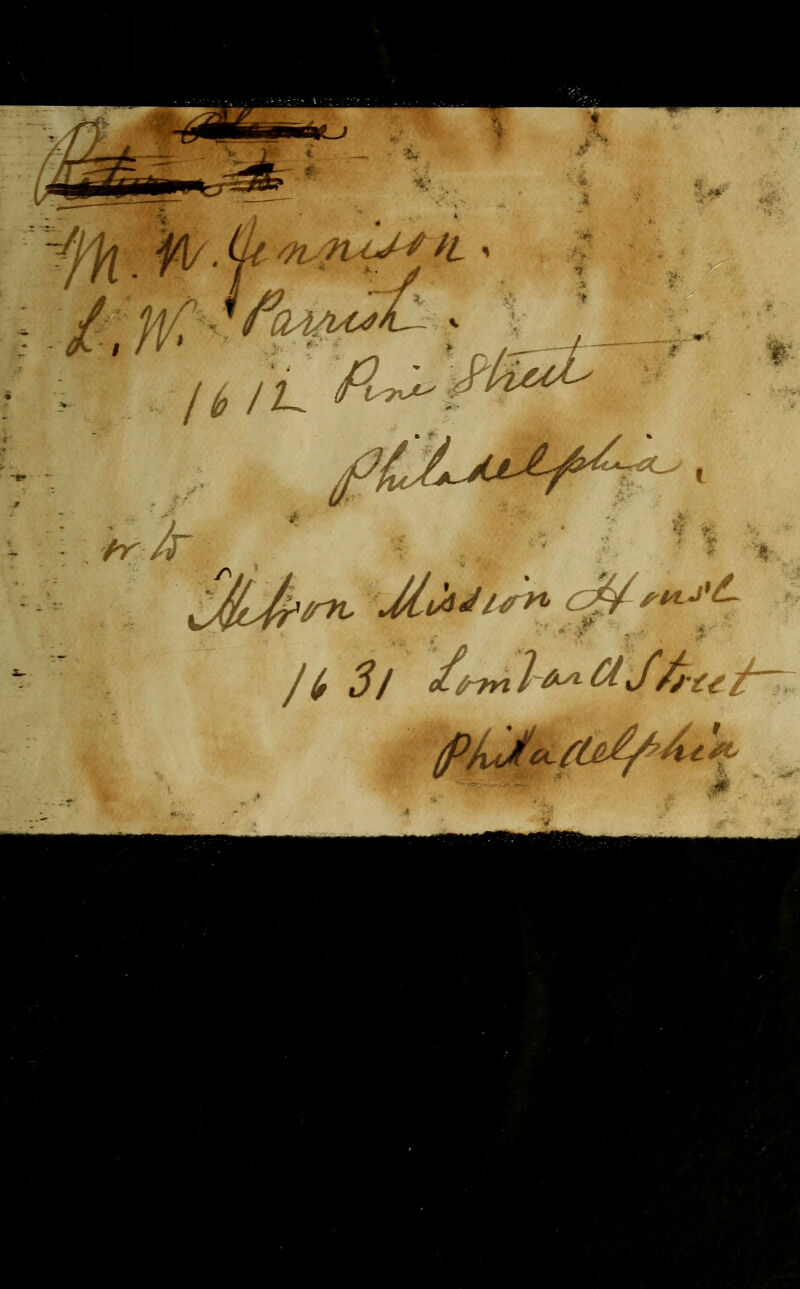 M. W. Jennison.
L. W. Parrish.
1612 Pine Street
Philadelphia,
or to
Mission House
1631 Lombard Street
Philadelphia